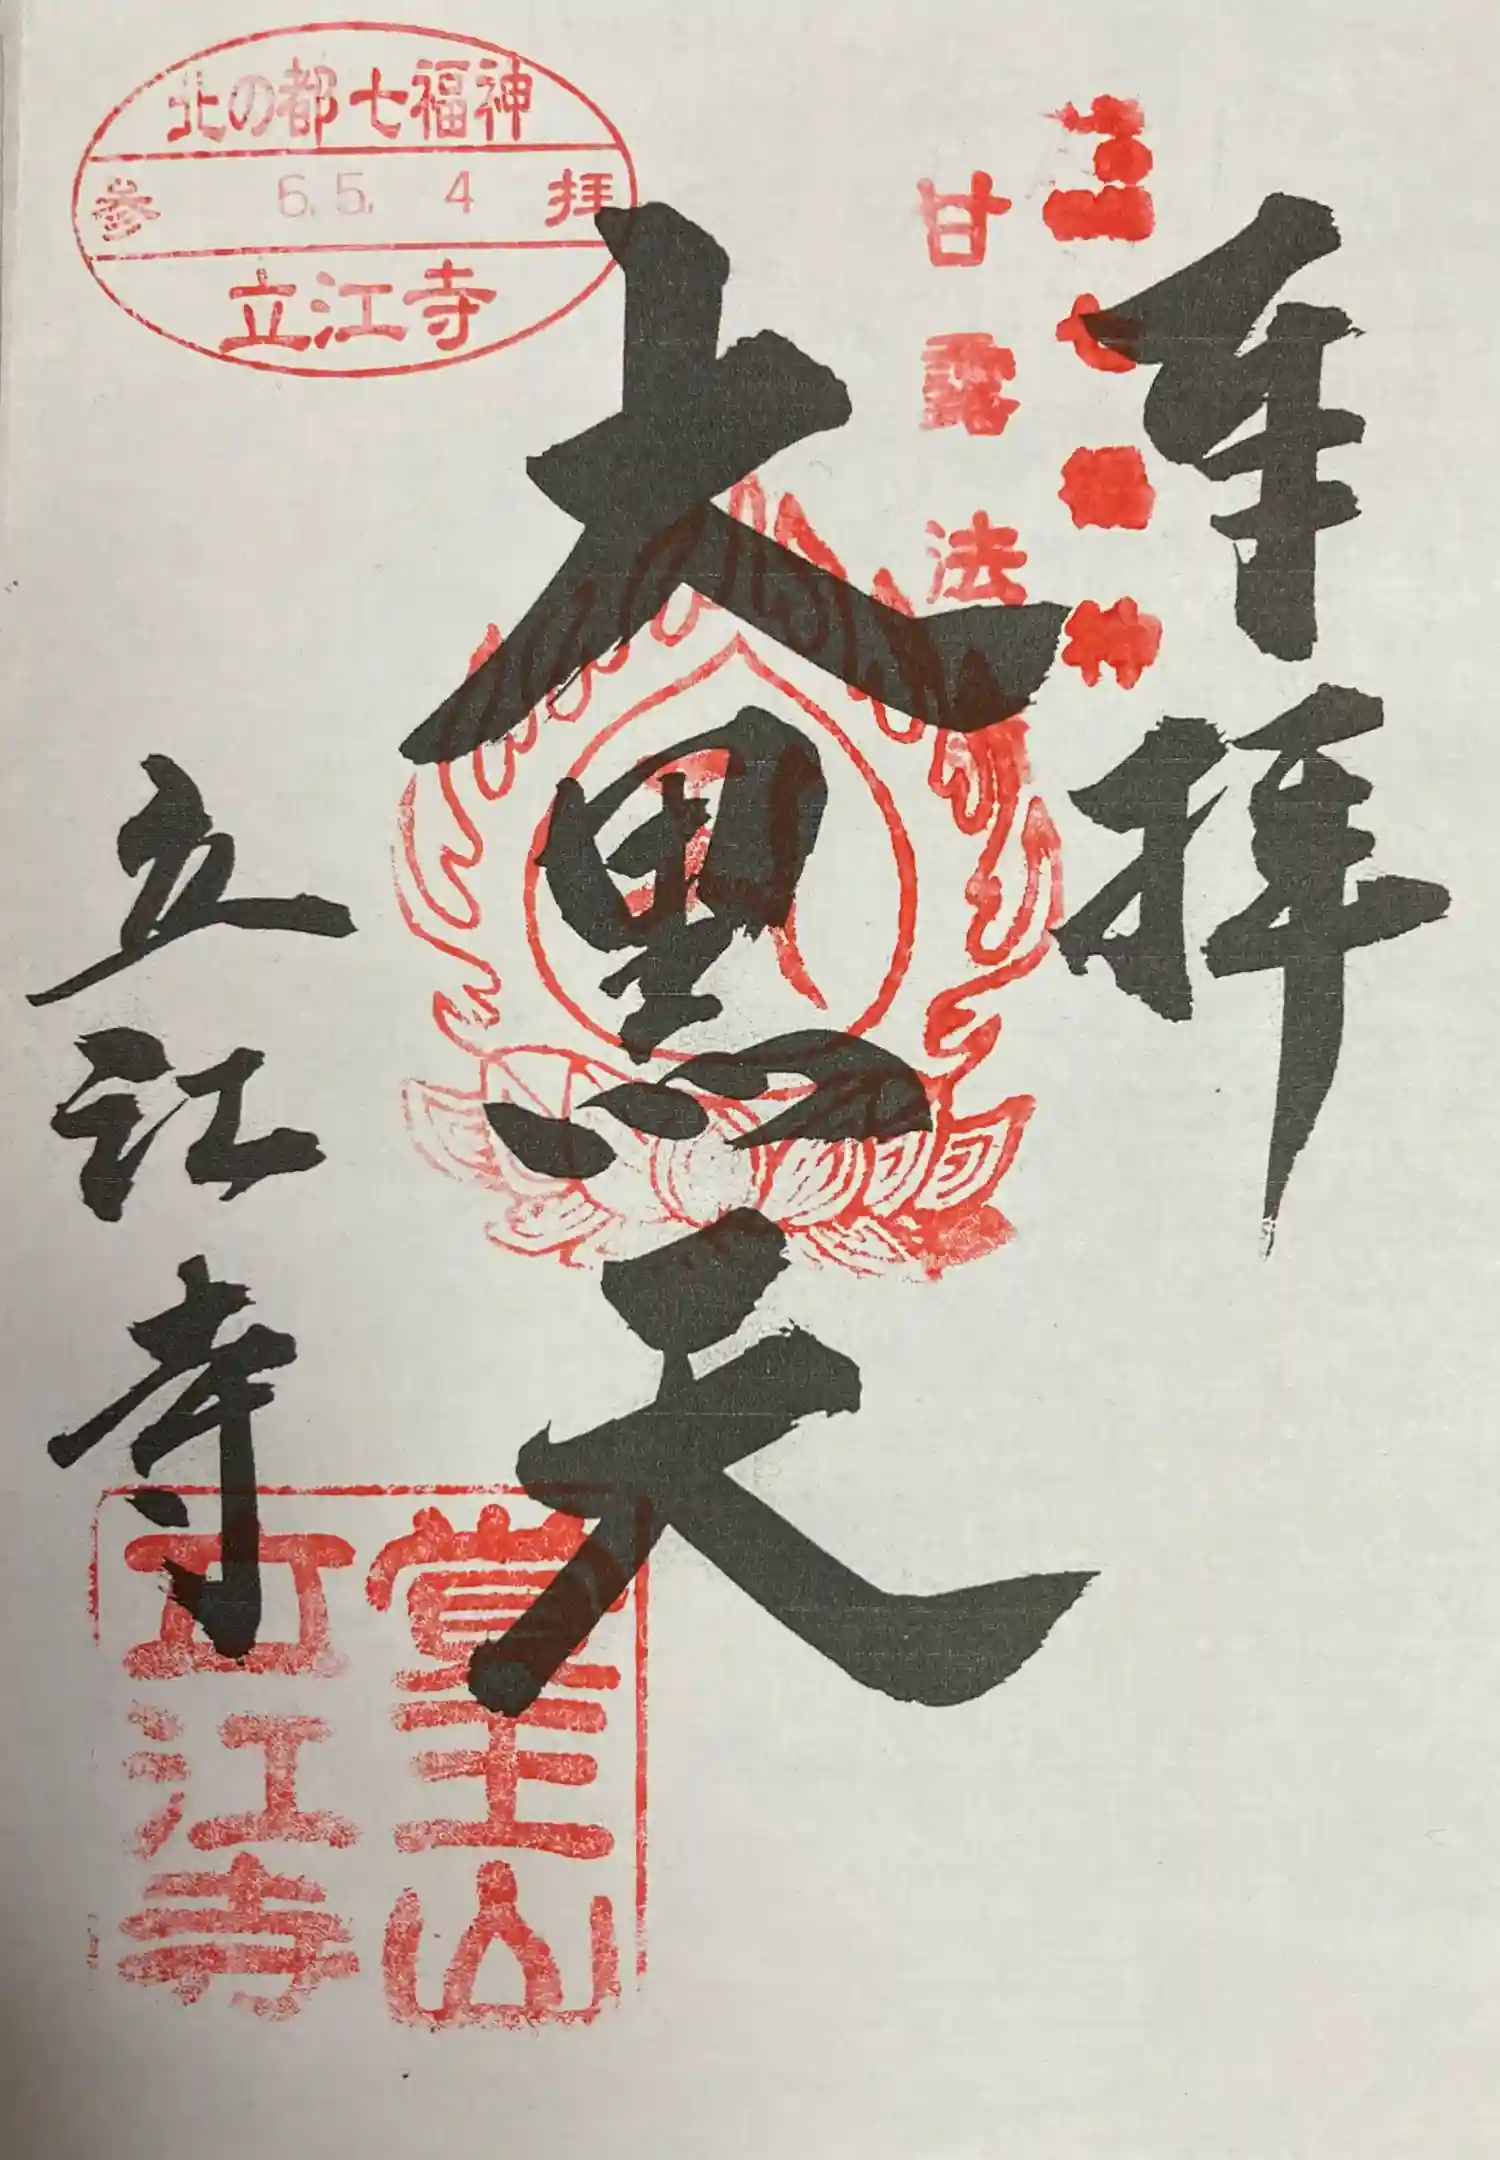 奉拝
七福神
甘露法
大黒天
立江寺
北の都七福神
参 6.5. 4 拝
立江寺
堂王山
立江寺